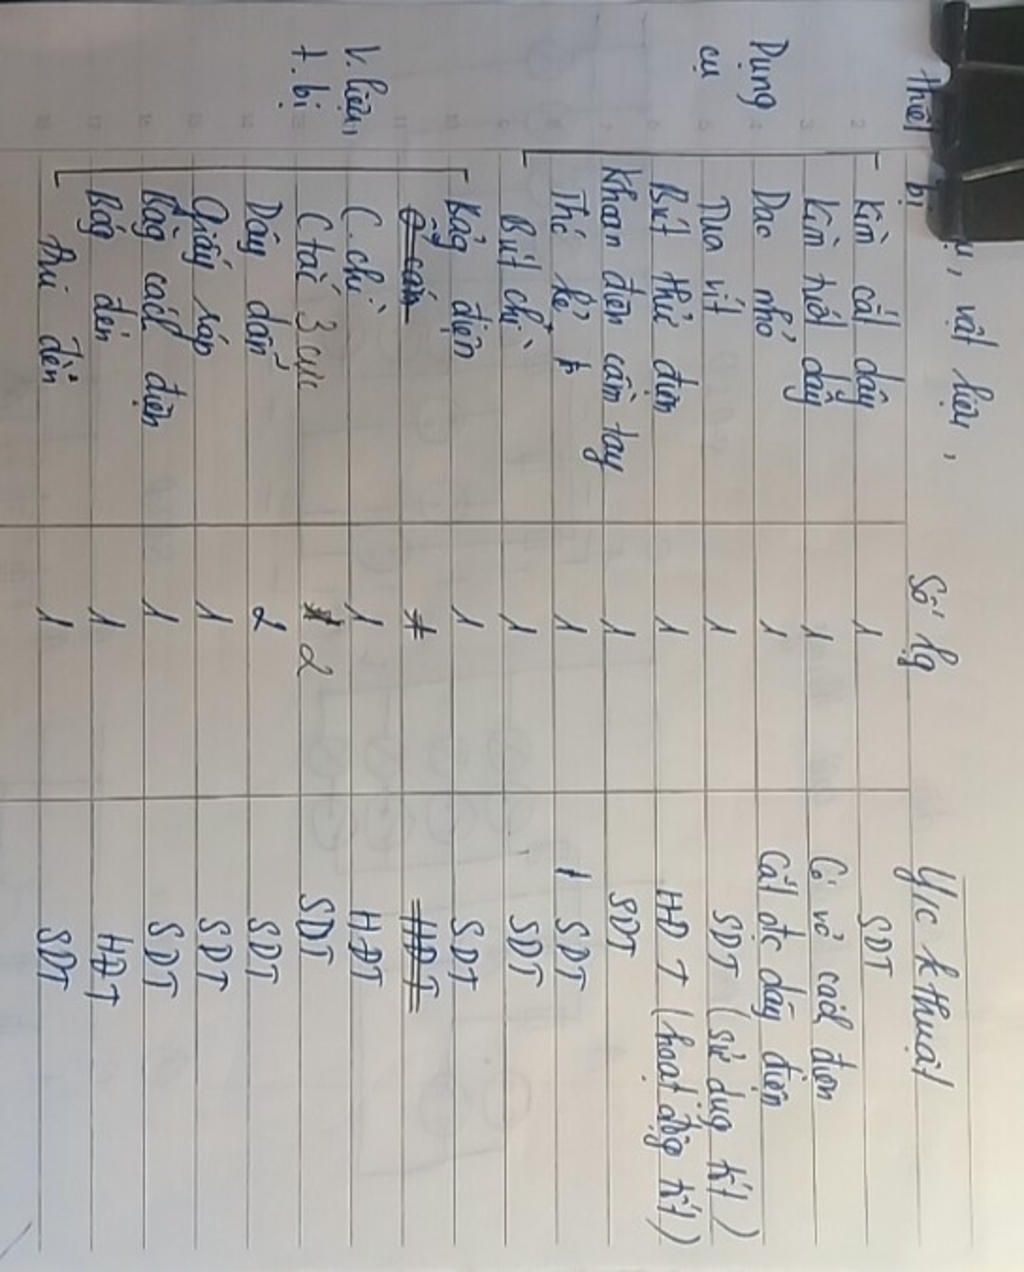 ụ, vật liệu,
thiết bị Số lg Y/c k thuật
Dụng cụ
Kìm cắt dây 1 SDT
Kìm tuốt dây 1 Có vỏ cách điện
Dao nhỏ 1 Cắt đc dây điện
Tua vít 1 SDT (sử dụg tốt)
Bút thử điện 1 HĐT (hoạt độg tốt)
Khoan điện cầm tay 1 SDT
Thước kẻ 1 SDT
Bút chì 1 SDT
V.liệu, t.bị
Bảg điện 1 SDT
Ổ cắm HĐT
C.chì 1 HĐT
C tắc 3 cực 2 SDT
Dây dẫn 2 SDT
Giấy ráp 1 SDT
Băg cách điện 1 SDT
Bóg đèn 1 HĐT
Đui đèn 1 SDT